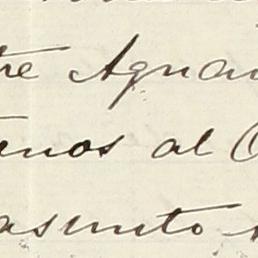 tre Agua
enos al
asunto